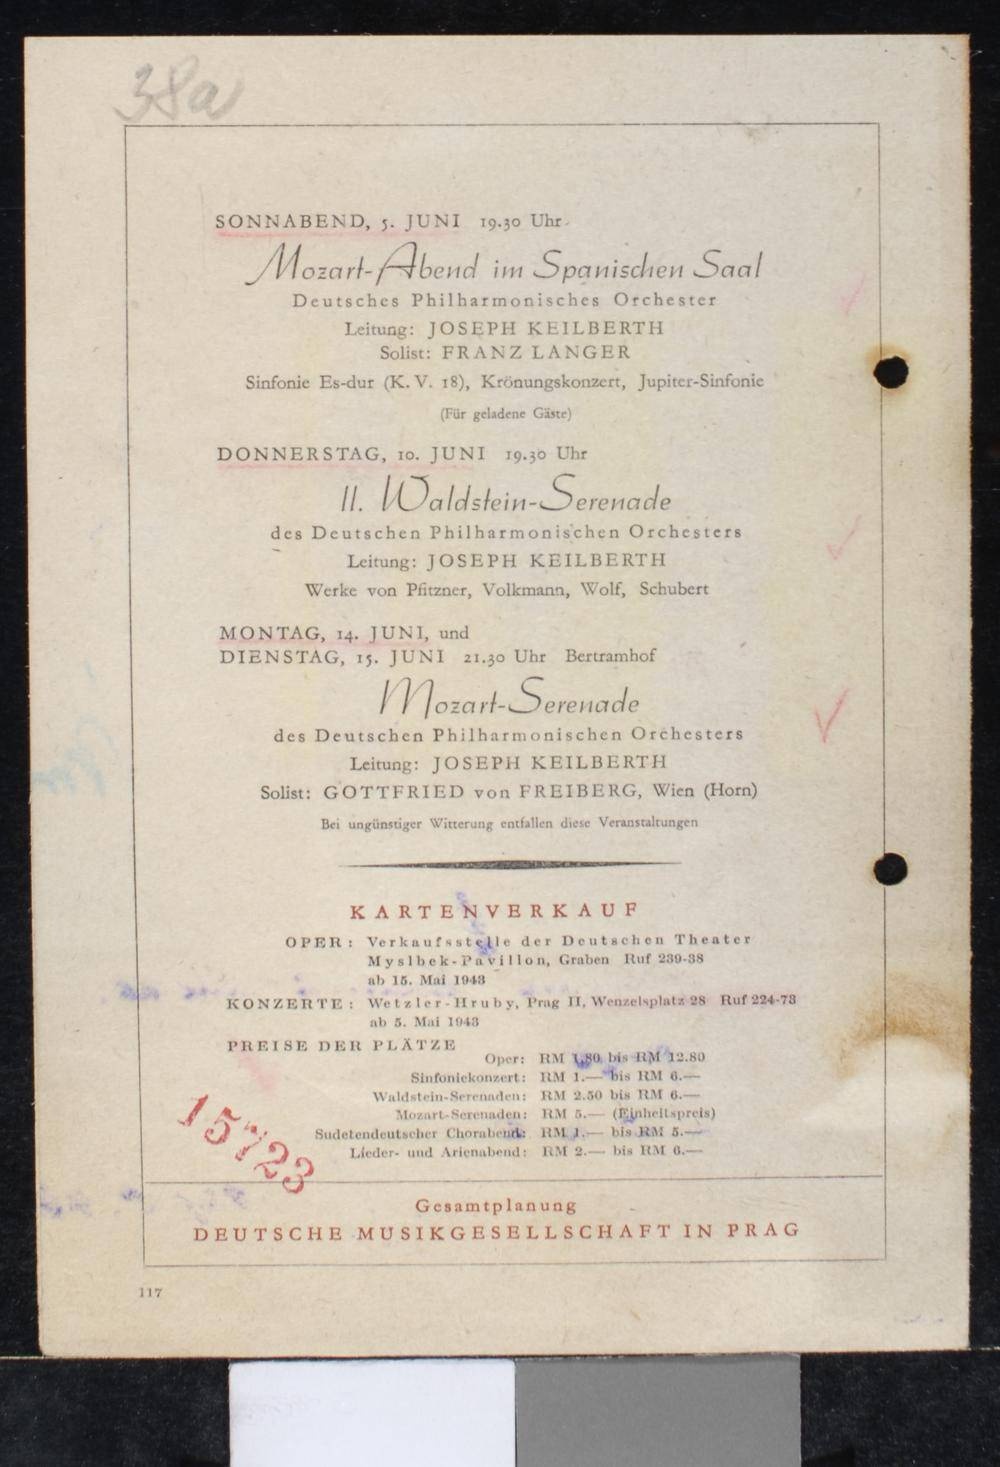 38a
SONNABEND, 5. JUNI 19.30 Uhr
Mozart-Abend im Spanischen Saal
Deutsches Philharmonisches Orchester
Leitung: JOSEPH KEILBERTH
Solist: FRANZ LANGER
Sinfonie Es-dur (K. V. 18), Krönungskonzert, Jupiter-Sinfonie
(Für geladene Gäste)
DONNERSTAG, 10. JUNI 19.30 Uhr
II. Waldstein-Serenade
des Deutschen Philharmonischen Orchesters
Leitung: JOSEPH KEILBERTH
Werke von Pfitzner, Volkmann, Wolf, Schubert
MONTAG, 14. JUNI, und
DIENSTAG, 15. JUNI 21.30 Uhr Bertramhof
Mozart-Serenade
des Deutschen Philharmonischen Orchesters
Leitung: JOSEPH KEILBERTH
Solist: GOTTFRIED von FREIBERG, Wien (Horn)
Bei ungünstiger Witterung entfallen diese Veranstaltungen
KARTENVERKAUF
OPER: Verkaufsstelle der Deutschen Theater
Myslbek-Pavillon, Graben Ruf 239-38
ab 15. Mai 1943
KONZERTE: Wetzler-Hruby, Prag II, Wenzelsplatz 28 Ruf 224-73
ab 5. Mai 1943
PREISE DER PLÄTZE
Oper: RM 1.80 bis RM 12.80
Sinfoniekonzert: RM 1.— bis RM 6.—
Waldstein-Serenaden: RM 2.50 bis RM 6.—
Mozart-Serenaden: RM 5.— (Einheitspreis)
Sudetendeutscher Chorabend: RM 1.— bis RM 5.—
Lieder- und Arienabend: RM 2.— bis RM 6.—
15723
Gesamtplanung
DEUTSCHE MUSIKGESELLSCHAFT IN PRAG
117